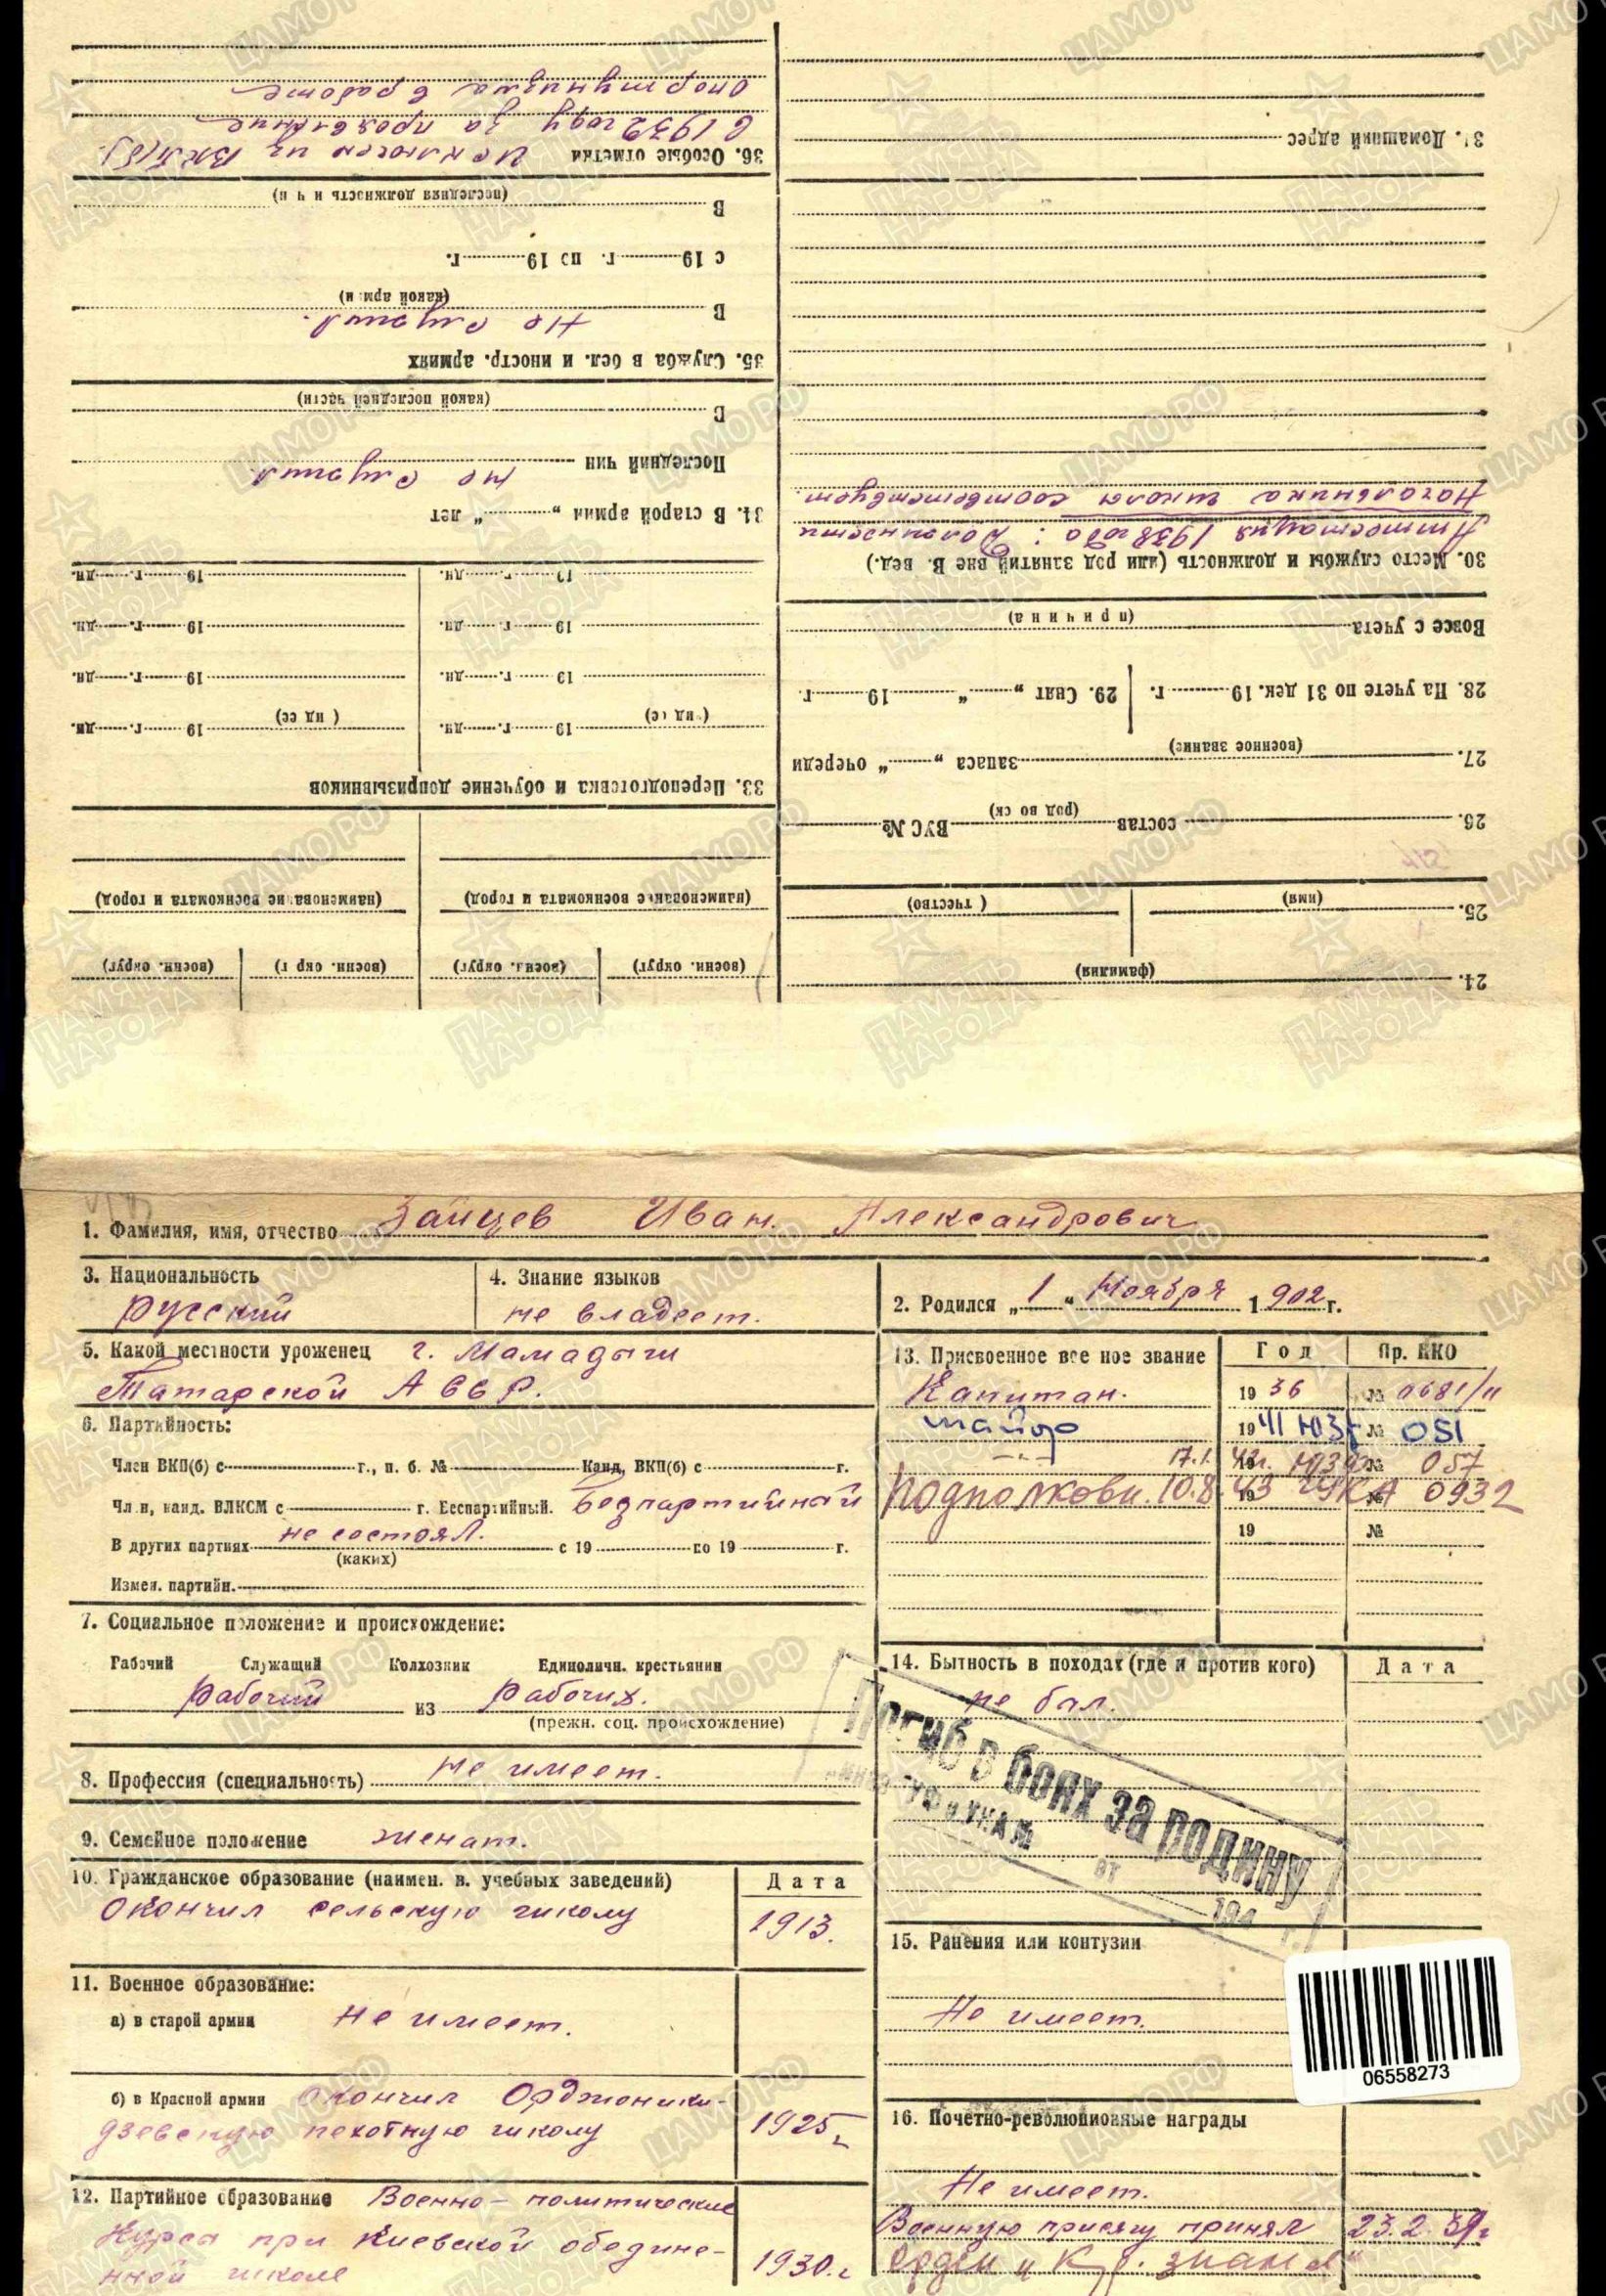 1. Фамилия, имя, отчество Зайцев Иван. Александрович
3. Национальность
русский
4. Знание языков
не владеет.
2. Родился „1“ Ноября 1902 г.
5. Какой местности уроженец г. Мамадыш
Татарской АССР.
6. Партийность:
Член ВКП(б) с г., п. б. № Канд. ВКП(б) с г.
Член, канд. ВЛКСМ с г. Беспартийный. Беспартийный
В других партиях не состоял. с 19 по 19 г.
(каких)
Измен. партийн.
7. Социальное положение и происхождение:
Рабочий Служащий Колхозник Единоличн. крестьянин
рабочий из рабочих.
(прежн. соц. происхождение)
8. Профессия (специальность) не имеет.
9. Семейное положение женат.
10. Гражданское образование (наимен. в. учебных заведений) Дата
Окончил сельскую школу 1913.
11. Военное образование:
а) в старой армии Не имеет.
б) в Красной армии окончил Орджоники-
дзевскую пехотную школу 1925 г.
12. Партийное образование Военно-политические
курсы при Киевской обедине-
нной школе 1930 г.
13. Присвоенное военное звание Год Пр. НКО
Капитан. 1936 № 0681/п
майор 1941 ЮЗФ № 051
17.1. 42 г. № 057
Подполковн. 10.8.43 № 0932
19 №
14. Бытность в походах (где и против кого) Дата
не был.
Погиб в боях за родину
от 194 г.
15. Ранения или контузии
Не имеет.
06558273
16. Почетно-революционные награды
Не имеет.
Военную присягу принял 23.2.39 г
Орден „Кр. знамя“
24.
(фамилия)
25.
(имя) (отчество)
26. состав ВУС №
(род войск)
27. запаса „ “ очереди
(военное звание)
28. На учете по 31 дек. 19 г. 29. Снят „ “ 19 г.
Вовсе с учета
(причина)
30. Место службы и должность (или род занятий вне В. вед.)
Аттестация 1938 года: Должности
Начальника школы соответствует.
31. Домашний адрес
(военн. округ) (военн. округ) (военн. округ) (военн. округ)
(наименование военкомата и город) (наименование военкомата и город)
33. Переподготовка и обучение допризывников
19 г. дн. 19 г. дн.
19 г. дн. 19 г. дн.
19 г. дн. 19 г. дн.
19 г. дн. 19 г. дн.
34. В старой армии „ “ лет
Последний чин Не служил.
В
(какой последней части)
35. Служба в бел. и иностр. армиях
В Не служил.
(какой армии)
с 19 г. по 19 г.
В
(последняя должность и чин)
36. Особые отметки Исключен из ВКП(б).
в 1932 году за проявление
опортунизма в работе
ЦАМО РФ
ПАМЯТЬ НАРОДА